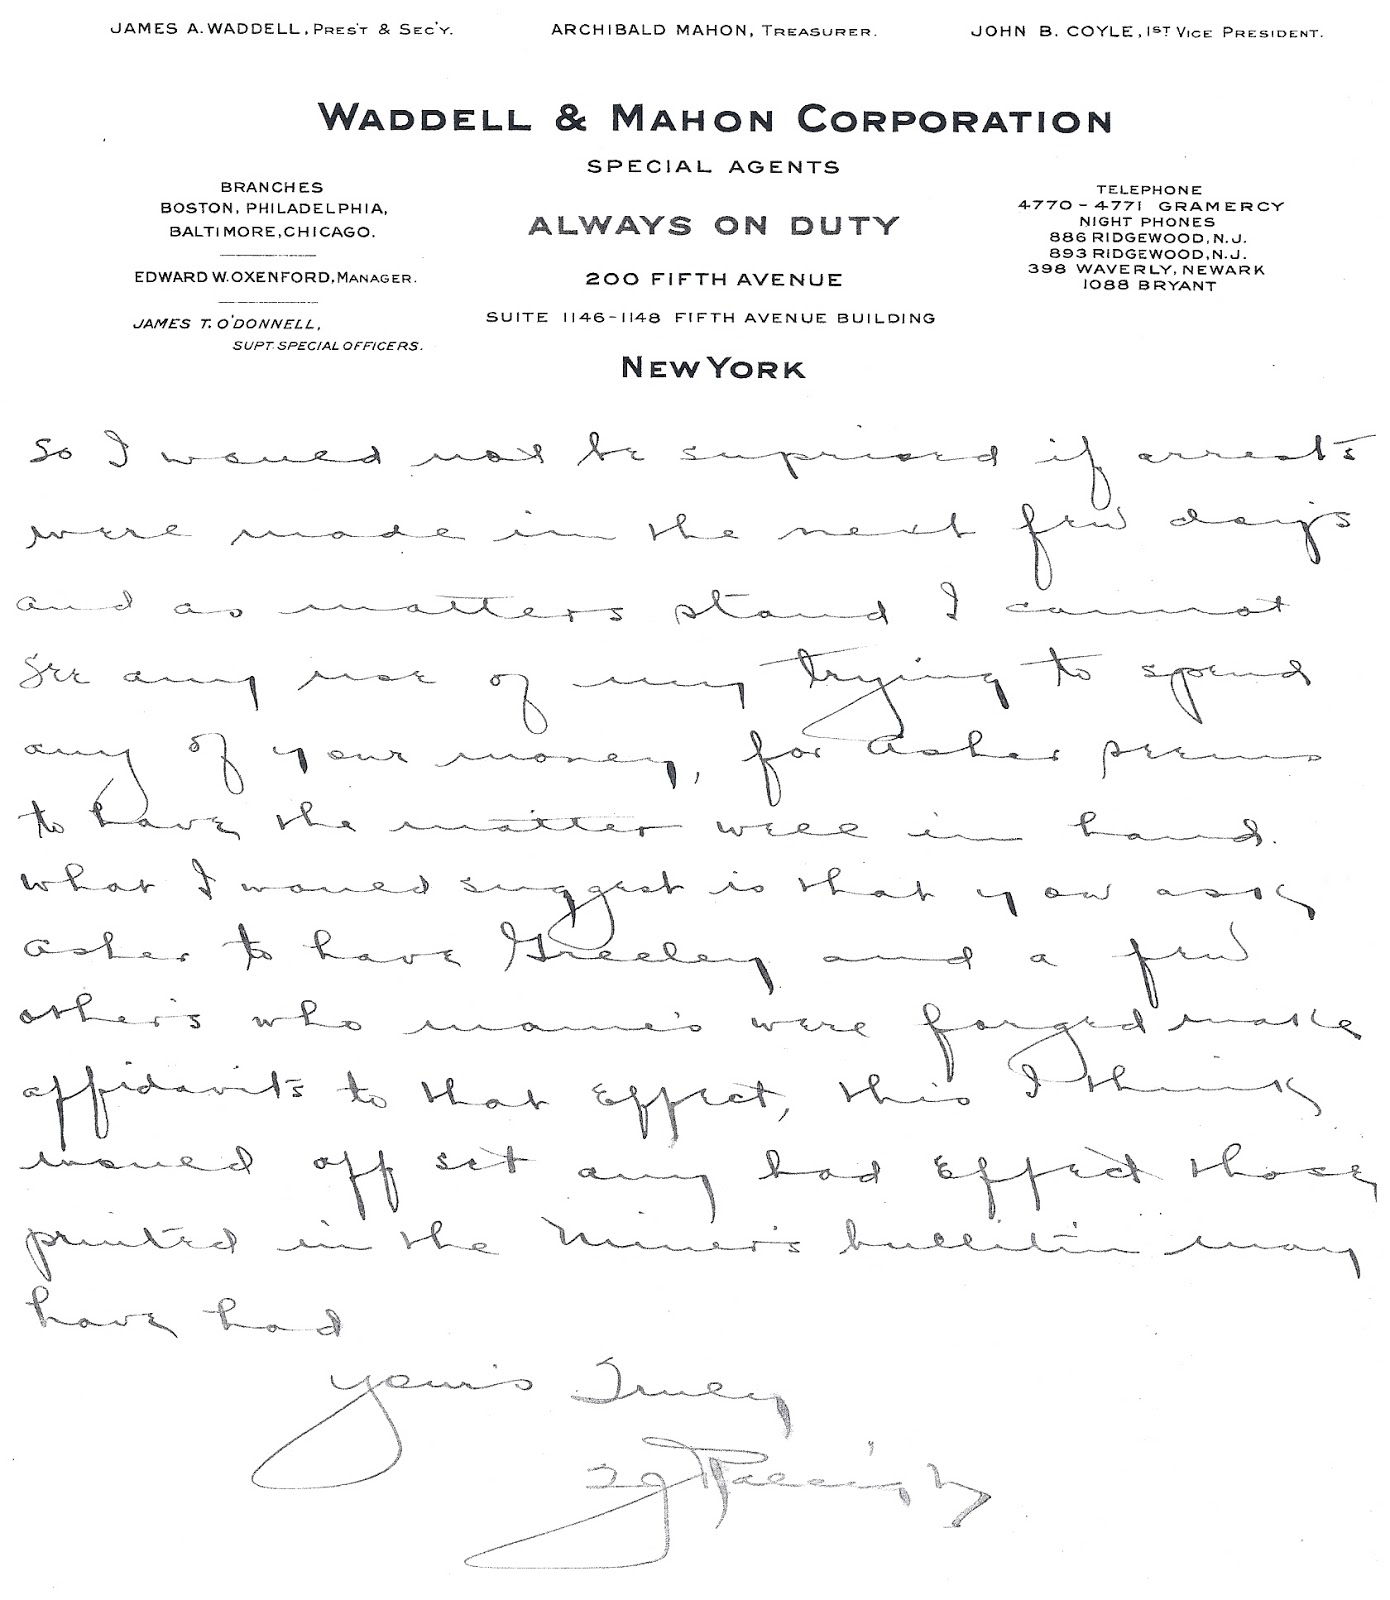 JAMES A. WADDELL, PRES'T & SEC'Y.
ARCHIBALD MAHON, TREASURER.
JOHN B. COYLE, 1ST VICE PRESIDENT.
WADDELL & MAHON CORPORATION
SPECIAL AGENTS
ALWAYS ON DUTY
200 FIFTH AVENUE
SUITE 1146-1148 FIFTH AVENUE BUILDING
NEW YORK
BRANCHES
BOSTON, PHILADELPHIA,
BALTIMORE, CHICAGO.
EDWARD W. OXENFORD, MANAGER.
JAMES T. O'DONNELL,
SUPT. SPECIAL OFFICERS.
TELEPHONE
4770-4771 GRAMERCY
NIGHT PHONES
886 RIDGEWOOD, N.J.
893 RIDGEWOOD, N.J.
398 WAVERLY, NEWARK
1088 BRYANT
So I would not be suprised if arrests
were made in the next few days
and as matters stand I cannot
see any use of my trying to spend
any of your money, for Asher seems
to have the matter well in hand.
What I would suggest is that you ask
Asher to have Greeley and a few
other's who name's were forged make
affidavits to that Effect, this I think
would off set any bad Effect those
printed in the Miner's bullitin may
have had
Your's Truley